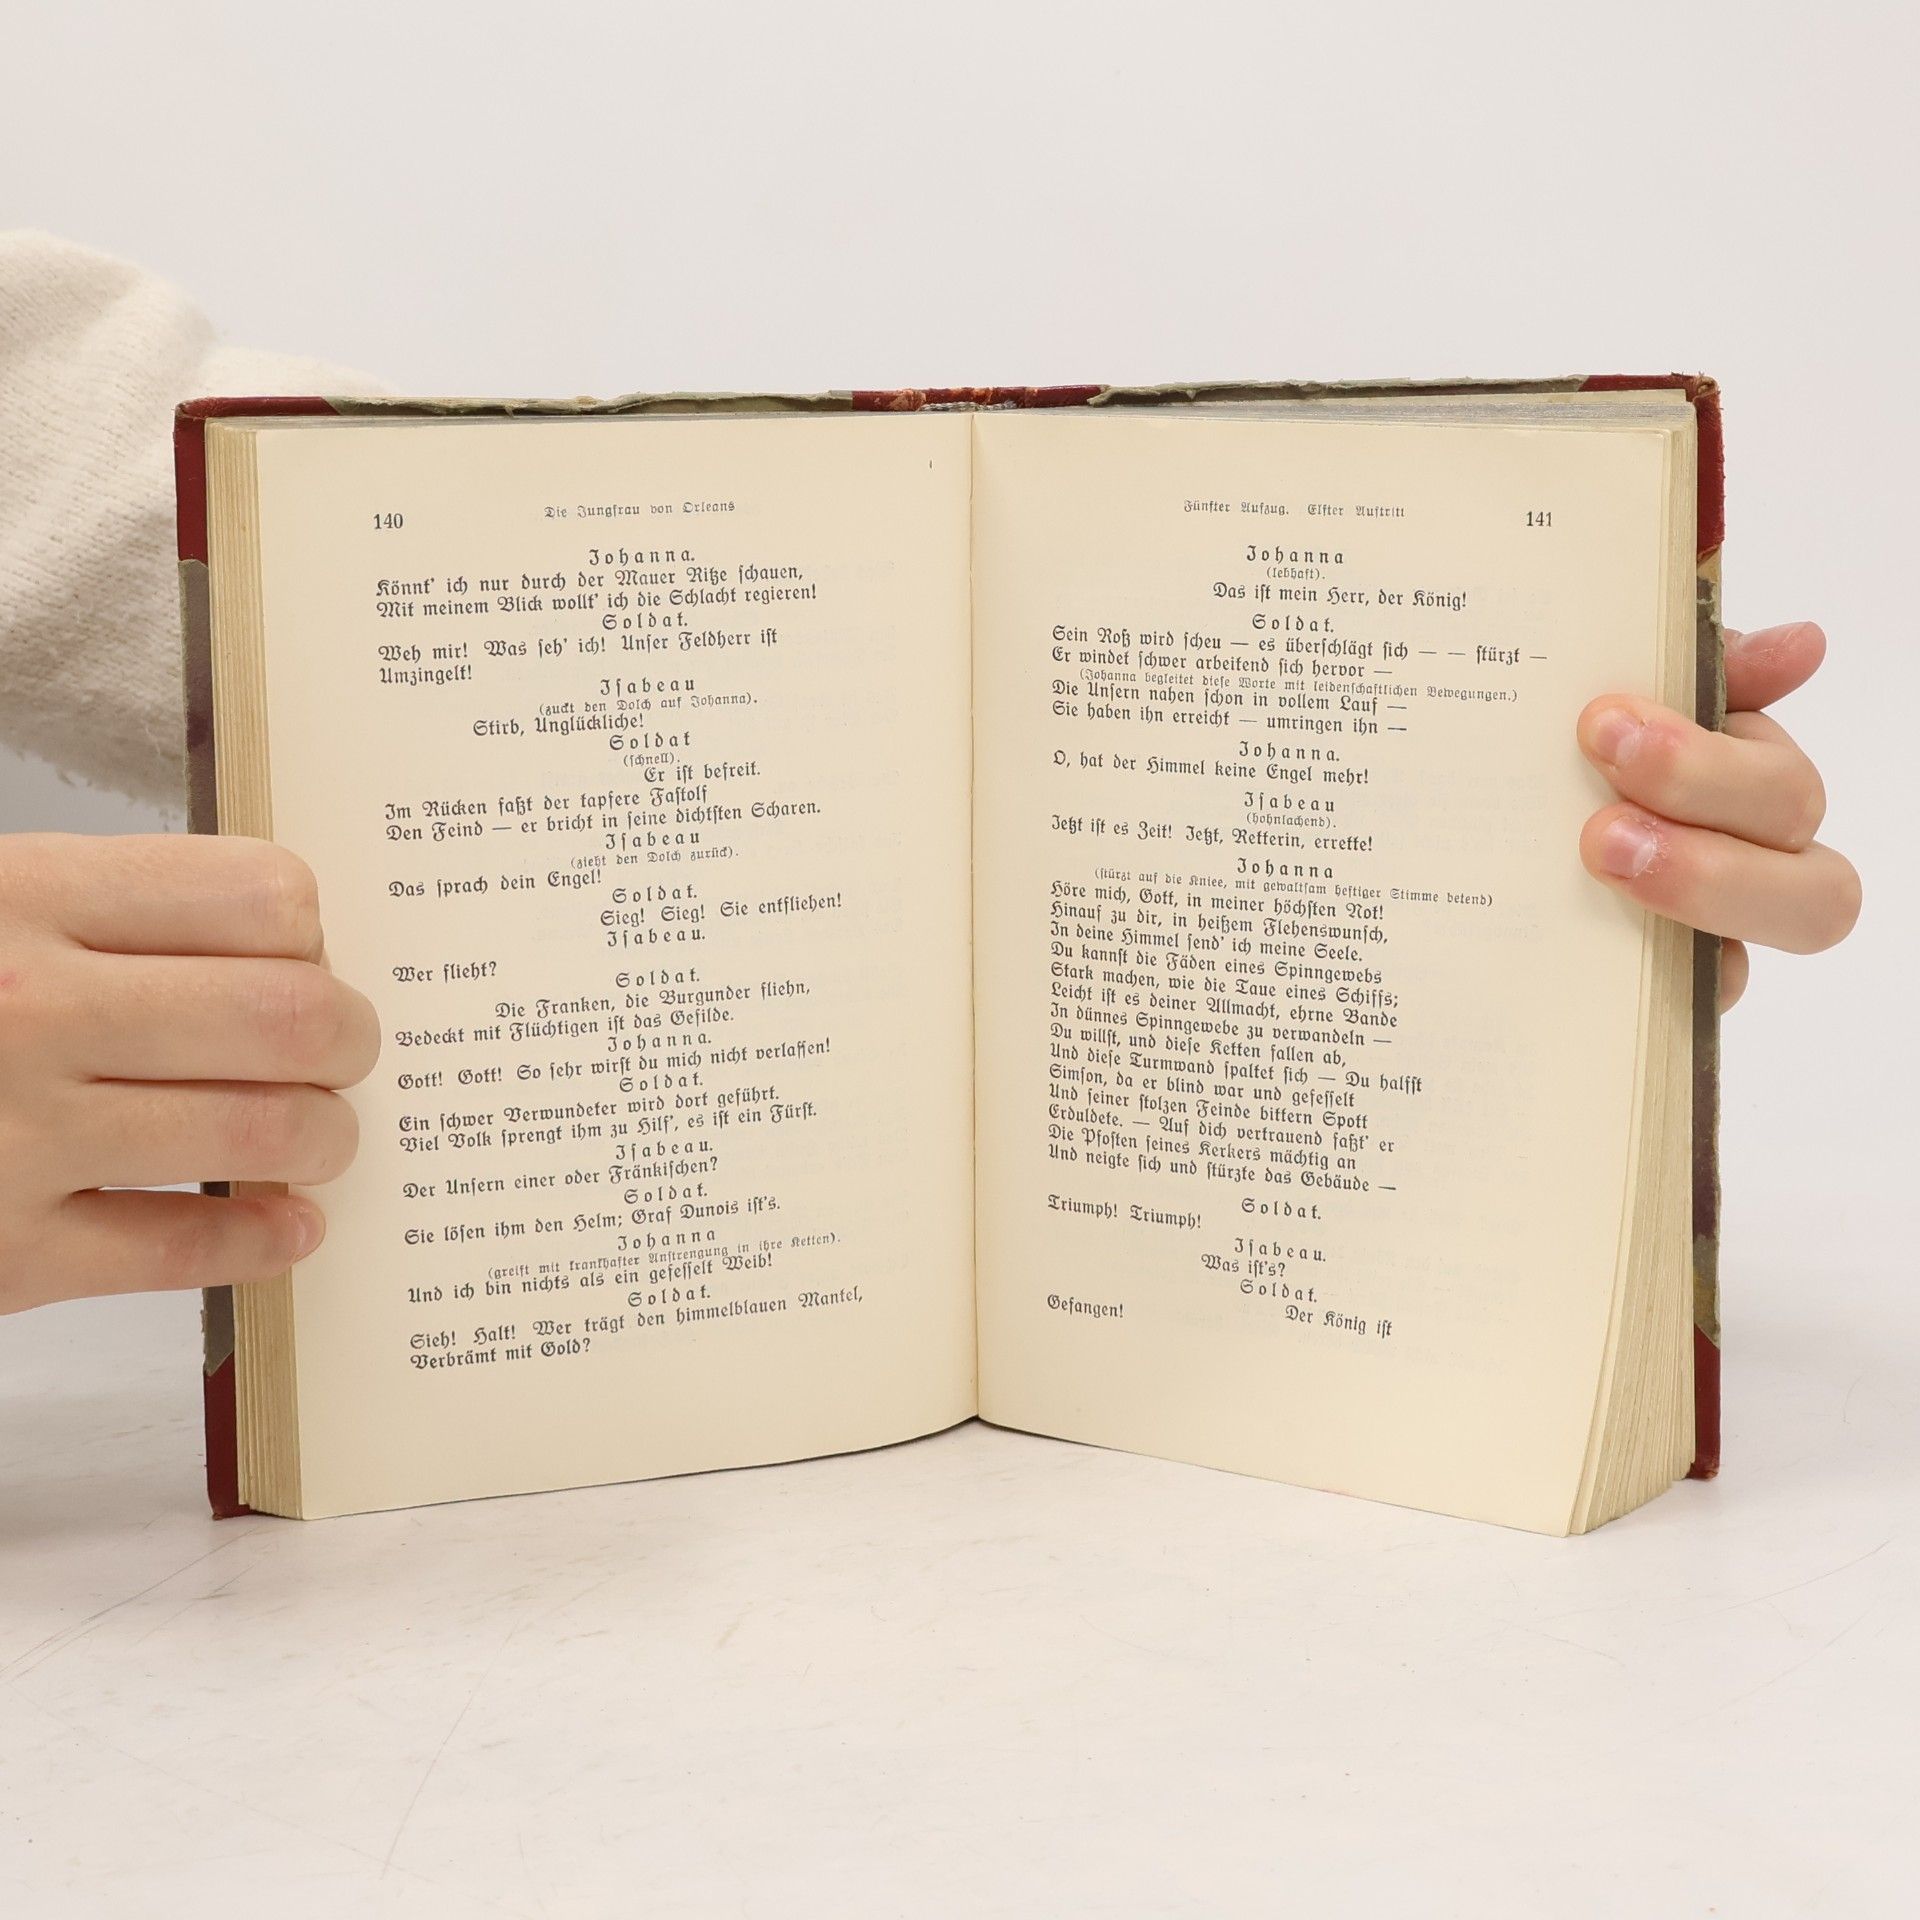 140
Die Jungfrau von Orleans
Johanna.
Könnt' ich nur durch der Mauer Ritze schauen,
Mit meinem Blick wollt' ich die Schlacht regieren!
Soldat.
Weh mir! Was seh' ich! Unser Feldherr ist
Umzingelt!
Isabeau
(zuckt den Dolch auf Johanna).
Stirb, Unglückliche!
Soldat
(schnell).
Er ist befreit.
Im Rücken faßt der tapfere Fastolf
Den Feind — er bricht in seine dichtsten Scharen.
Isabeau
(zieht den Dolch zurück).
Das sprach dein Engel!
Soldat.
Sieg! Sieg! Sie entfliehen!
Isabeau.
Wer flieht?
Soldat.
Die Franken, die Burgunder fliehn,
Bedeckt mit Flüchtigen ist das Gefilde.
Johanna.
Gott! Gott! So sehr wirst du mich nicht verlassen!
Soldat.
Ein schwer Verwundeter wird dort geführt.
Viel Volk sprengt ihm zu Hilf', es ist ein Fürst.
Isabeau.
Der Unsern einer oder Fränkischen?
Soldat.
Sie lösen ihm den Helm; Graf Dunois ist's.
Johanna
(greift mit krankhafter Anstrengung in ihre Ketten).
Und ich bin nichts als ein gefesselt Weib!
Soldat.
Sieh! Halt! Wer trägt den himmelblauen Mantel,
Verbrämt mit Gold?
Fünfter Aufzug. Elfter Auftritt
141
Johanna
(lebhaft).
Das ist mein Herr, der König!
Soldat.
Sein Roß wird scheu — es überschlägt sich — — stürzt —
Er windet schwer arbeitend sich hervor —
(Johanna begleitet diese Worte mit leidenschaftlichen Bewegungen.)
Die Unsern nahen schon in vollem Lauf —
Sie haben ihn erreicht — umringen ihn —
Johanna.
O, hat der Himmel keine Engel mehr!
Isabeau
(hohnlachend).
Jetzt ist es Zeit! Jetzt, Retterin, errette!
Johanna
(stürzt auf die Kniee, mit gewaltsam heftiger Stimme betend)
Höre mich, Gott, in meiner höchsten Not!
Hinauf zu dir, in heißem Flehenswunsch,
In deine Himmel send' ich meine Seele.
Du kannst die Fäden eines Spinngewebs
Stark machen, wie die Taue eines Schiffs;
Leicht ist es deiner Allmacht, ehrne Bande
In dünnes Spinngewebe zu verwandeln —
Du willst, und diese Ketten fallen ab,
Und diese Turmwand spaltet sich — Du halfst
Simson, da er blind war und gefesselt
Und seiner stolzen Feinde bittern Spott
Erduldete. — Auf dich vertrauend faßt' er
Die Pfosten seines Kerkers mächtig an
Und neigte sich und stürzte das Gebäude —
Soldat.
Triumph! Triumph!
Isabeau.
Was ist's?
Soldat.
Der König ist
Gefangen!